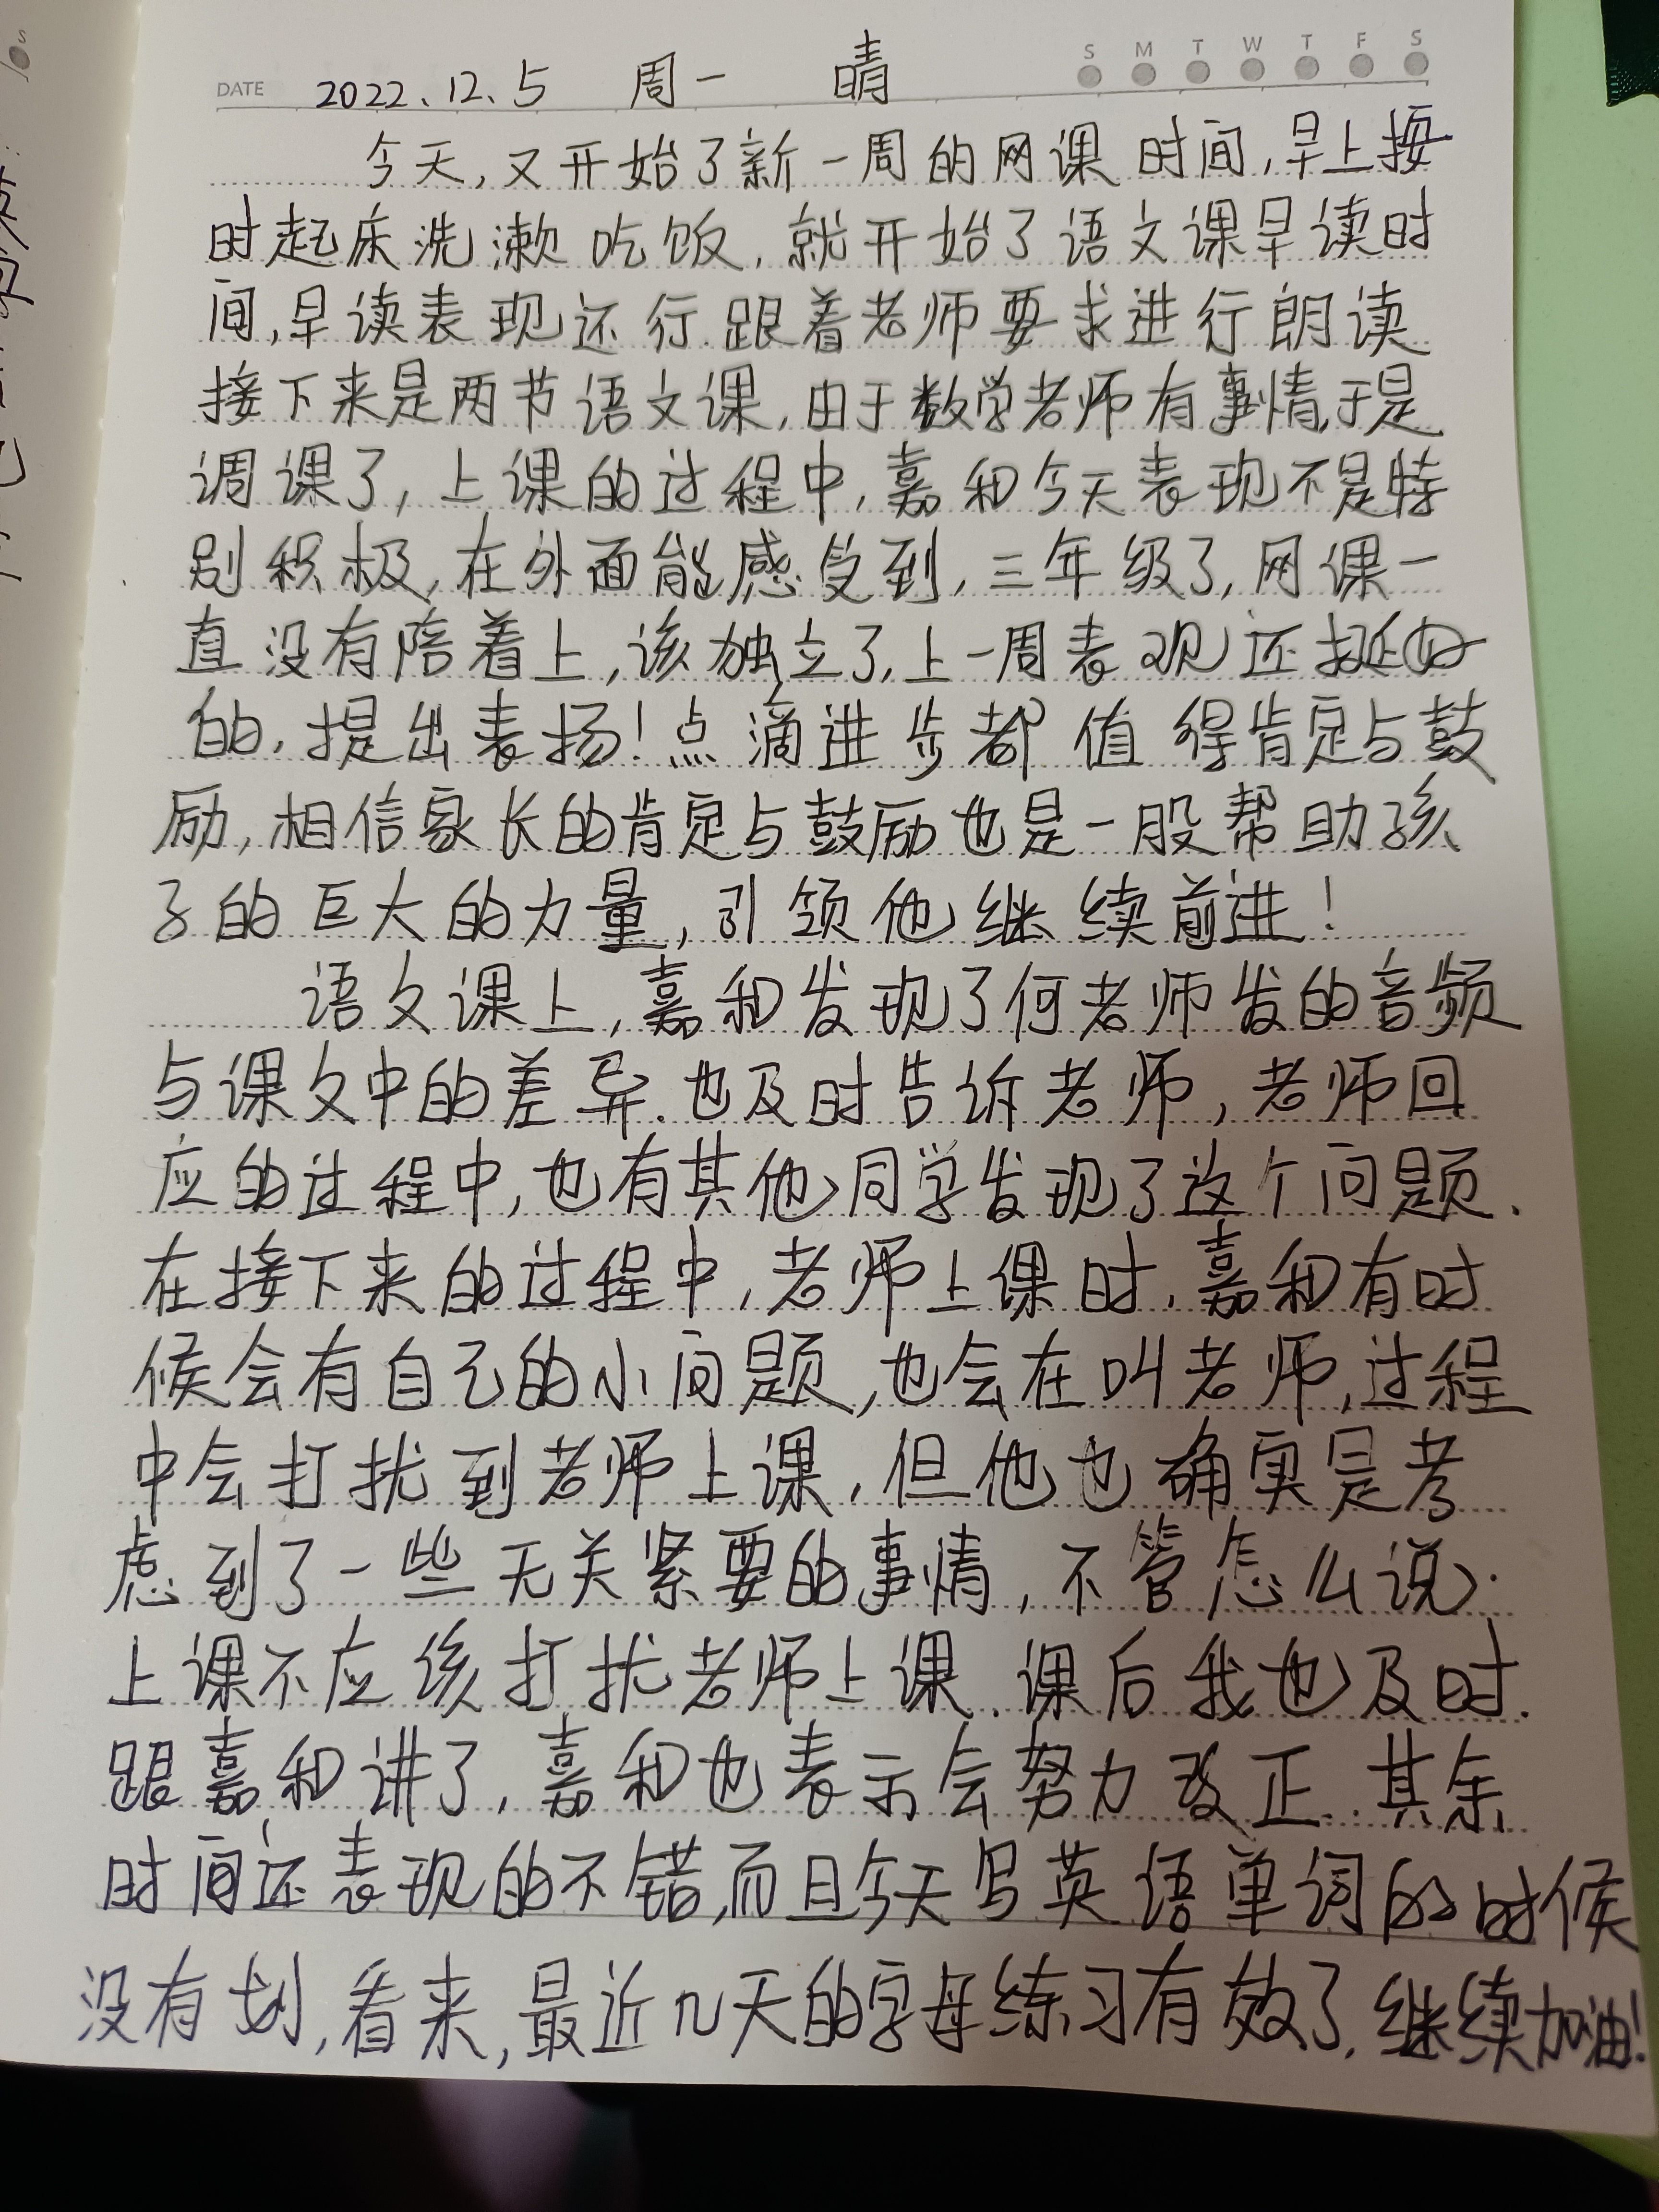 S M T W T F S
DATE 2022.12.5 周一 晴
今天,又开始了新一周的网课时间,早上按
时起床洗漱吃饭,就开始了语文课早读时
间,早读表现还行.跟着老师要求进行朗读
接下来是两节语文课,由于数学老师有事情,于是
调课了,上课的过程中,嘉和今天表现不是特
别积极,在外面能感受到,三年级了,网课一
直没有陪着上,该独立了,上一周表现还挺好
的,提出表扬!点滴进步都值得肯定与鼓
励,相信家长的肯定与鼓励也是一股帮助孩
子的巨大的力量,引领他继续前进!
语文课上,嘉和发现了何老师发的音频
与课文中的差异.也及时告诉老师,老师回
应的过程中,也有其他同学发现了这个问题.
在接下来的过程中,老师上课时,嘉和有时
候会有自己的小问题,也会在叫老师,过程
中会打扰到老师上课,但他也确实是考
虑到了一些无关紧要的事情,不管怎么说.
上课不应该打扰老师上课.课后我也及时.
跟嘉和讲了,嘉和也表示会努力改正.其余
时间还表现的不错,而且今天写英语单词的时候
没有划,看来,最近几天的字母练习有效了,继续加油!